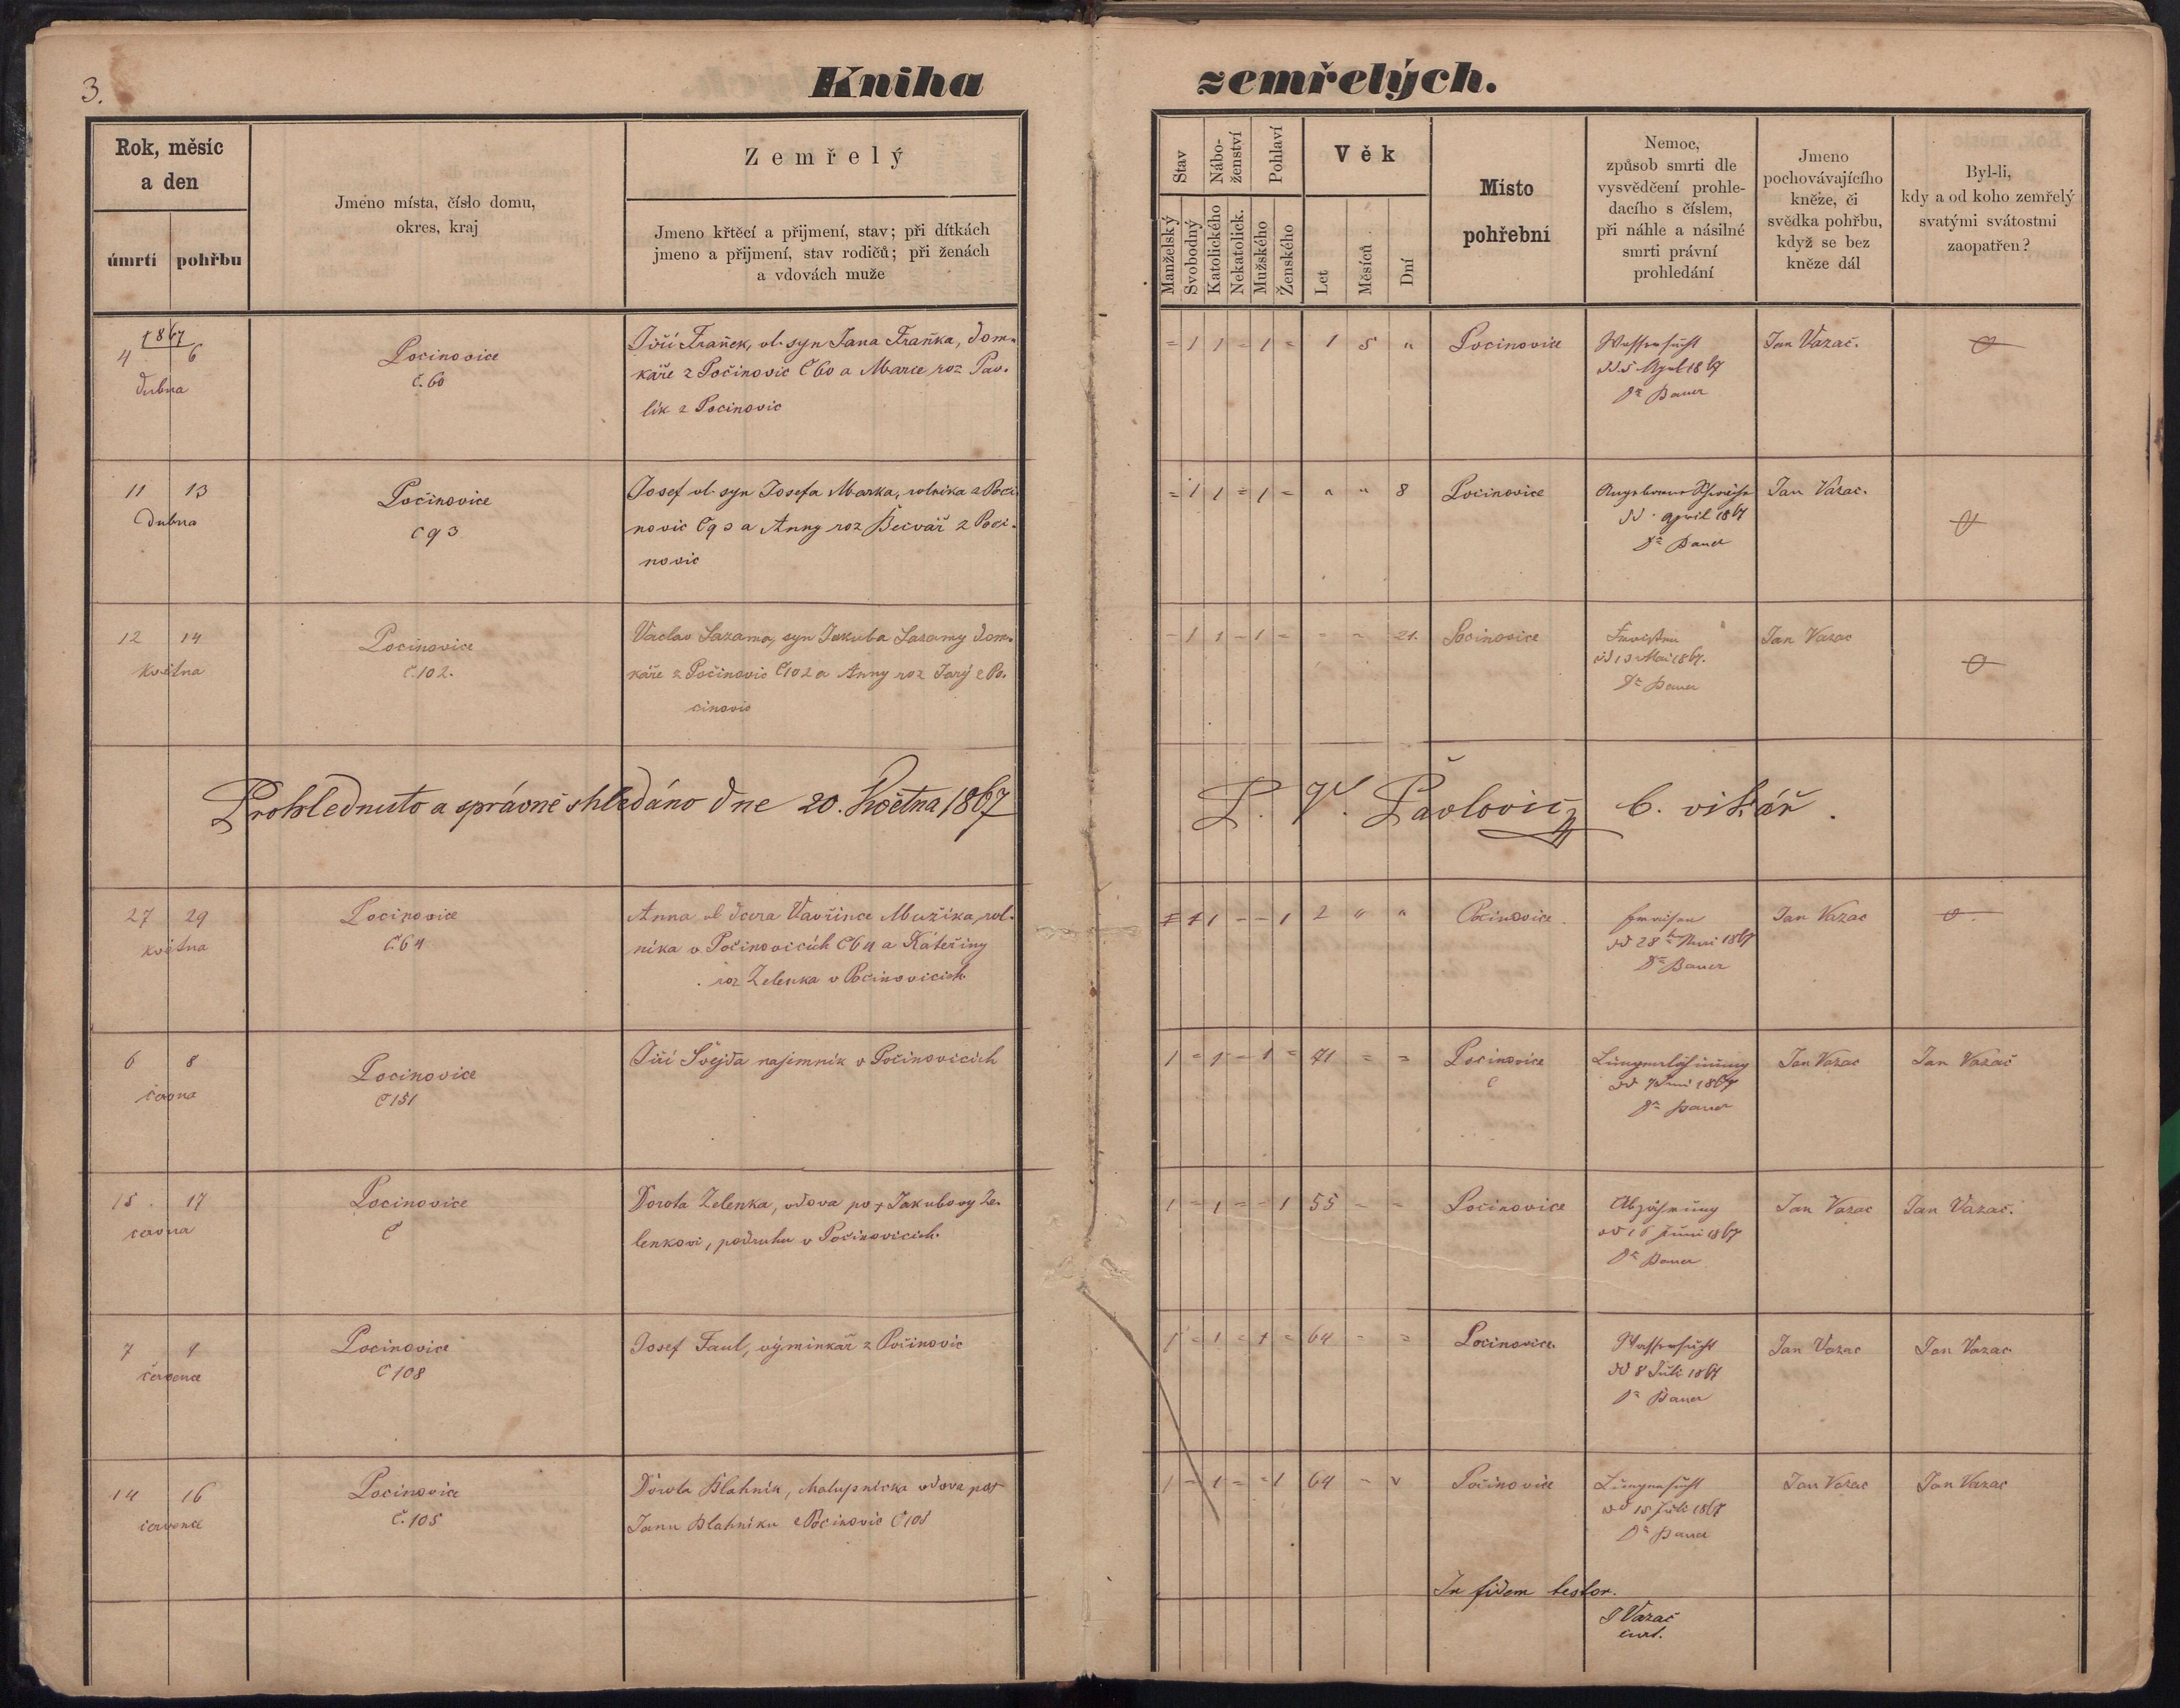 3.
Kniha zemřelých.
Rok, měsíc
a den
úmrtí pohřbu
Jmeno místa, číslo domu,
okres, kraj
Zemřelý
Jmeno křtěcí a přijmení, stav; při dítkách
jmeno a přijmení, stav rodičů; při ženách
a vdovách muže
Stav
Nábo-
ženství
Pohlaví
Věk
Manželský
Svobodný
Katolického
Nekatolick.
Mužského
Ženského
Let
Měsíců
Dní
Místo
pohřební
Nemoc,
způsob smrti dle
vysvědčení prohle-
dacího s číslem,
při náhle a násilné
smrti právní
prohledání
Jmeno
pochovávajícího
kněze, či
svědka pohřbu,
když se bez
kněze dál
Byl-li,
kdy a od koho zemřelý
svatými svátostmi
zaopatřen?
1867
4 6
dubna
Pocinovice
č. 60
Jiří Franěk, vl. syn Jana Fraňka, dom-
káře z Počinovic č 60 a Marie roz Pav-
lik z Pocinovic
= 1 1 = 1 = 1 5 "
Pocinovice
Wassersucht
dd. 5 April 1867
Dr Bauer
Jan Vazač.
11 13
dubna
Počinovice
č 93
Josef vl. syn Josefa Marka, rolníka z Poci-
novic č 93 a Anny roz Bečvář z Poci-
novic
= 1 1 = 1 = " " 8
Počinovice
dd. April 1867
Dr Bauer
Jan Vazac.
12 14
května
Pocinovice
č. 102.
Václav Sazama, syn Jakuba Sazamy dom-
káře z Počinovic č 102 a Anny roz Jarý z Po-
cinovic
- 1 1 - 1 = - - 21.
Pocinovice
Fraisen
dd 13 Mai 1867.
Dr Bauer
Jan Vazac
Prohlednuto a správné shledáno dne 20. Května 1867
Pavlovic b. vikář.
27 29
května
Pocinovice
č. 64
Anna vl dcera Vavřince Mužíka, rol-
níka v Počinovicích č 64 a Kateřiny
roz Zelenka v Pocinovicich.
1 1 - - 1 2 " "
Pocinovice.
Fraisen
dd 28 Mai 1867
Dr Bauer
Jan Vazac
6 8
června
Pocinovice
č 151
Jiří Svejda najemník v Počinovicích
1 = 1 - 1 = 71 = =
Pocinovice
č
Lungenlähmung
dd 7 Juni 1867
Dr Bauer
Jan Vazac
Jan Vazač
15. 17
cervna
Pocinovice
č
Dorota Zelenka, vdova po + Jakubovy Ze-
lenkovi, podruhu v Počinovicích.
1 - 1 - - 1 55 - -
Počinovice
Abzehrung
dd 16 Juni 1867
Dr Bauer
Jan Vazac
Jan Vazač.
7 9
července
Pocinovice
č 108
Josef Faul, výminkář z Počinovic
1 = 1 = 1 = 64 - =
Pocinovice.
Wassersucht
dd 8 Juli 1867
Dr Bauer
Jan Vazac
Jan Vazac
14 16
července
Pocinovice
č. 105
Dorota Blahnik, chalupnicka vdova po +
Janu Blahniku z Pocinovic č 105
1 - 1 = = 1 64 -
Počinovice
Lungensucht
dd 15 Juli 1867
Dr Bauer
Jan Vazac
Jan Vazac
In fidem testor.
J Vazač
curt.